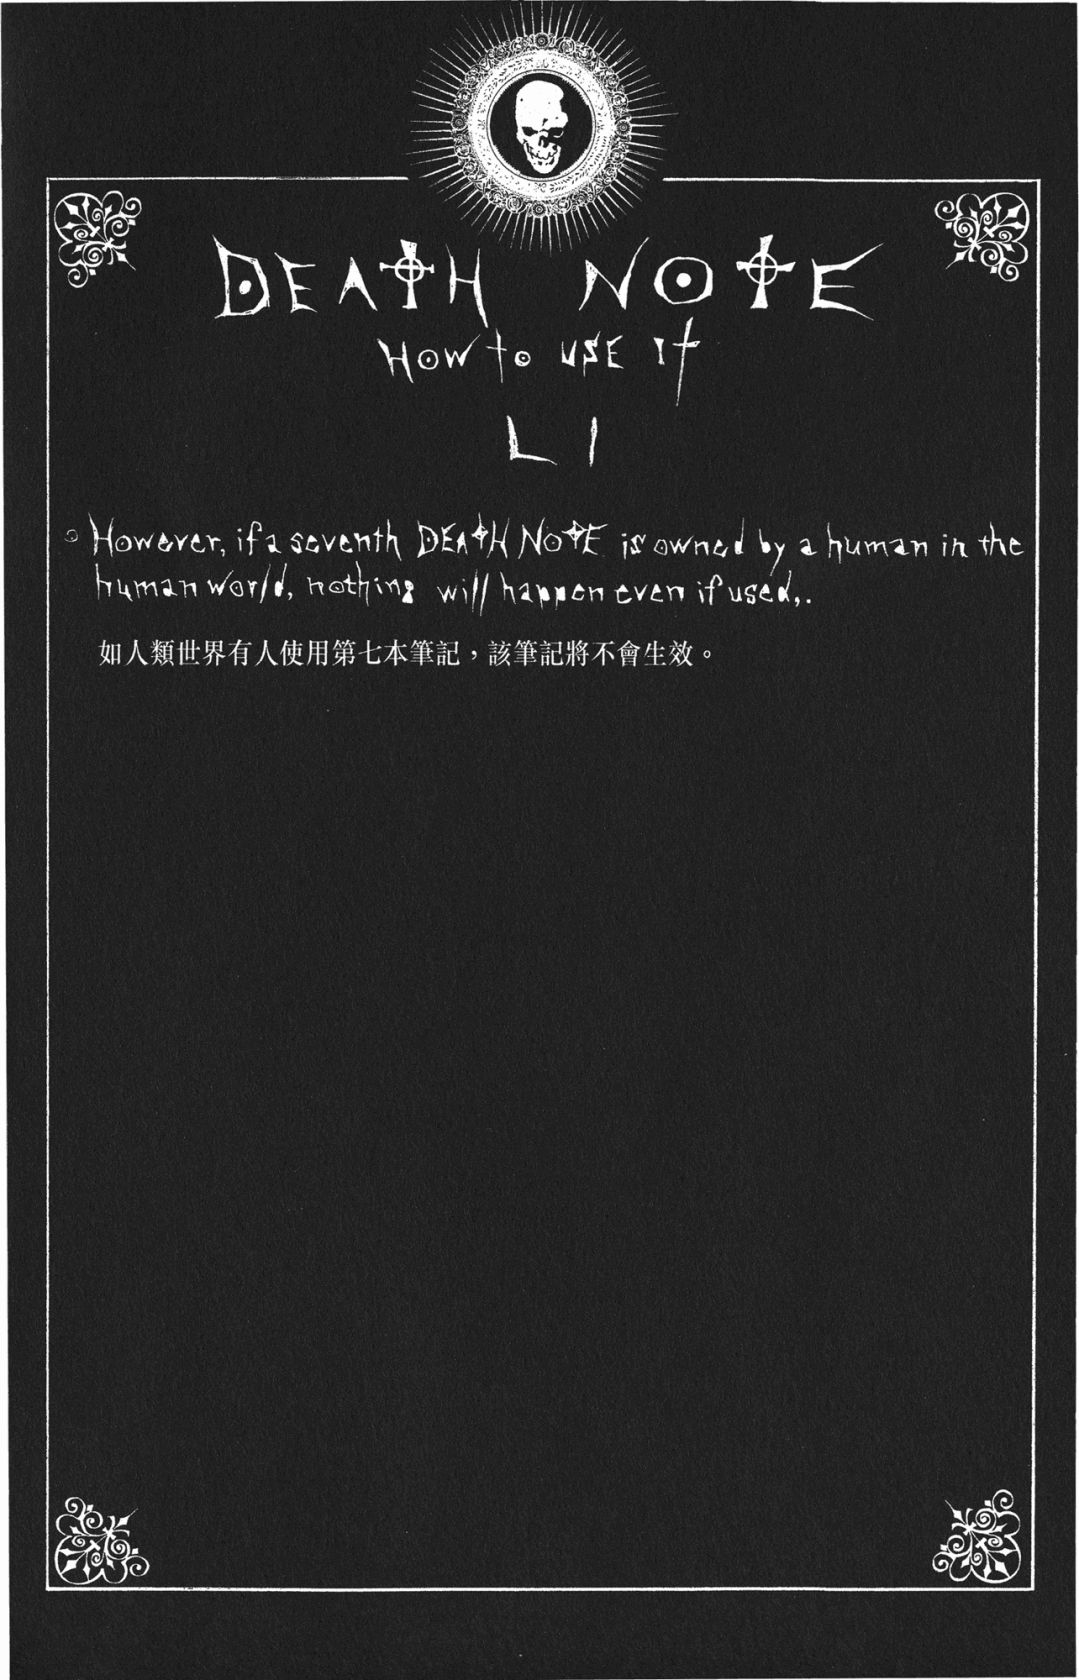 DEATH NOTE
HOW to USE It
LI
However, if a seventh DEATH NOTE is owned by a human in the
human world, nothing will happen even if used,.
如人類世界有人使用第七本筆記，該筆記將不會生效。